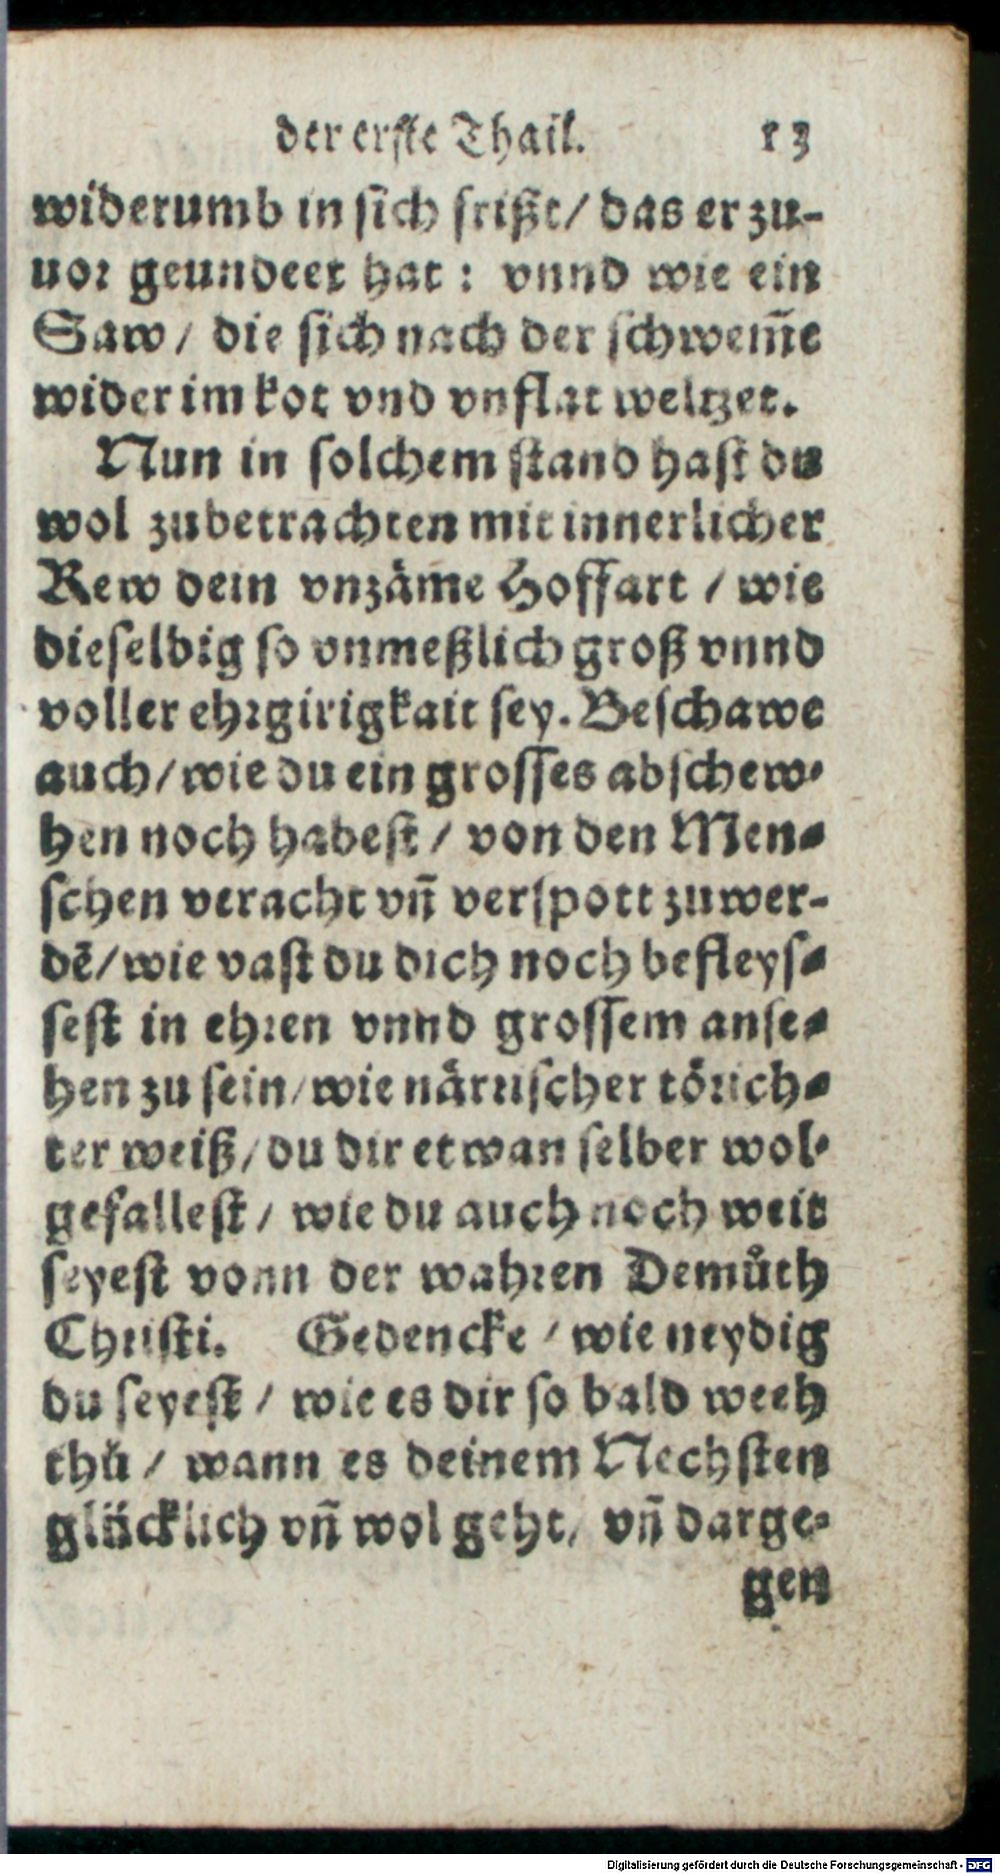 der erste Thail. 13
widerumb in sich frißt/ das er zu-
uor geundeet hat: vnnd wie ein
Saw/ die sich nach der schwem̅e
wider im kot vnd vnflat weltzet.
Nun in solchem stand hast du
wol zubetrachten mit innerlicher
Rew dein vnzäme Hoffart / wie
dieselbig so vnmeßlich groß vnnd
voller ehrgirigkait sey. Beschawe
auch/ wie du ein grosses abschew-
hen noch habest / von den Men-
schen veracht vn̄ verspott zuwer-
dē/ wie vast du dich noch befleys-
sest in ehren vnnd grossem anse-
hen zu sein/ wie närrischer törich-
ter weiß/ du dir etwan selber wol-
gefallest / wie du auch noch weit
seyest vonn der wahren Demůth
Christi. Gedencke / wie neydig
du seyest / wie es dir so bald weeh
thů / wann es deinem Nechsten
glücklich vn̄ wol geht/ vn̄ darge-
gen
Digitalisierung gefördert durch die Deutsche Forschungsgemeinschaft - DFG